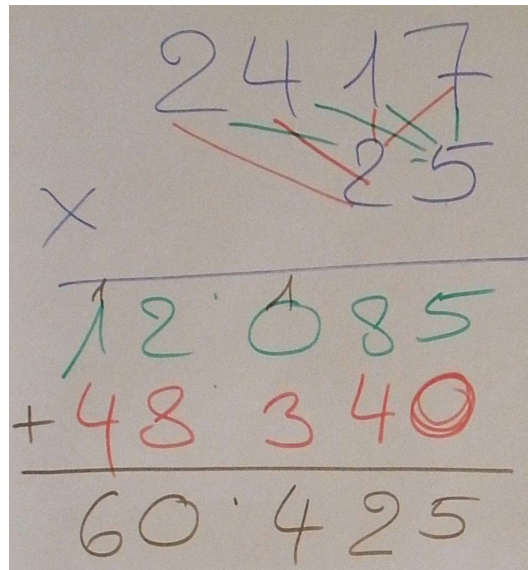 2417
25
×
1 1
12.085
+ 48.340
60.425